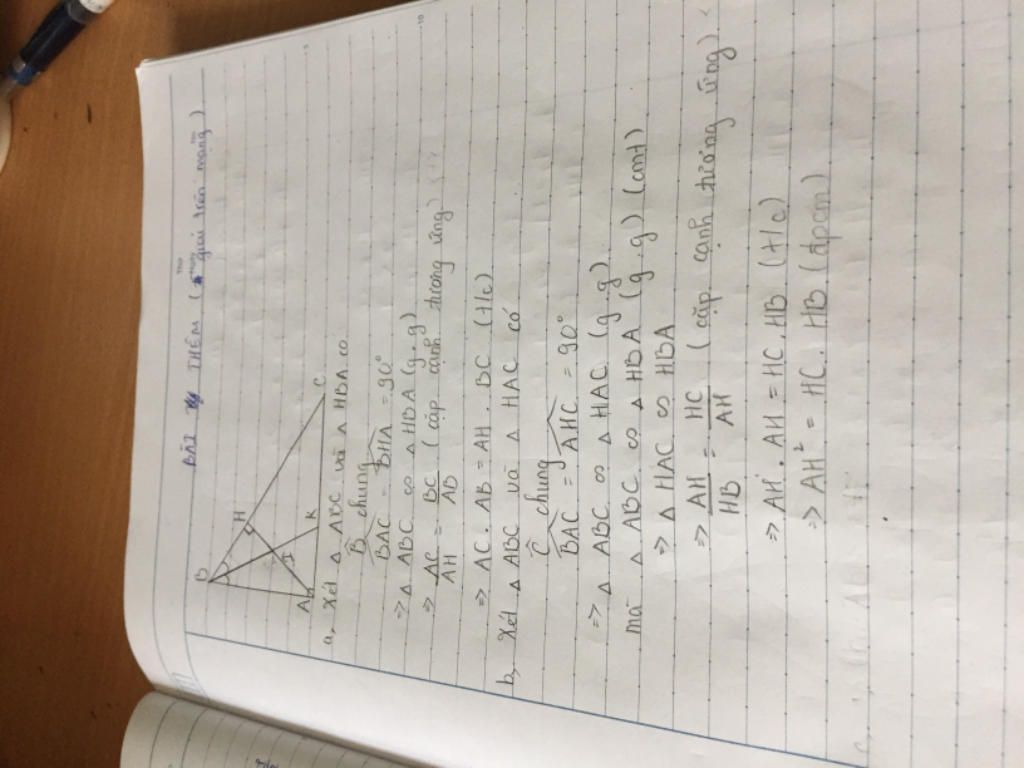 BÀI THÊM ( giải trên mạng )
B
H
I
A
K
C
a, Xét Δ ABC và Δ HBA có
B̂ chung
BAC = BHA = 90°
=> Δ ABC ∽ Δ HBA (g.g)
=> AC/AH = BC/AB ( cặp cạnh tương ứng)
=> AC. AB = AH. BC (tlc)
b, Xét Δ ABC và Δ HAC có
Ĉ chung
BAC = AHC = 90°
=> Δ ABC ∽ Δ HAC (g.g)
mà Δ ABC ∽ Δ HBA (g.g) (cmt)
=> Δ HAC ∽ HBA
=> AH/HB = HC/AH ( cặp cạnh tương ứng)
=> AH. AH = HC. HB (tlc)
=> AH² = HC. HB (đpcm)